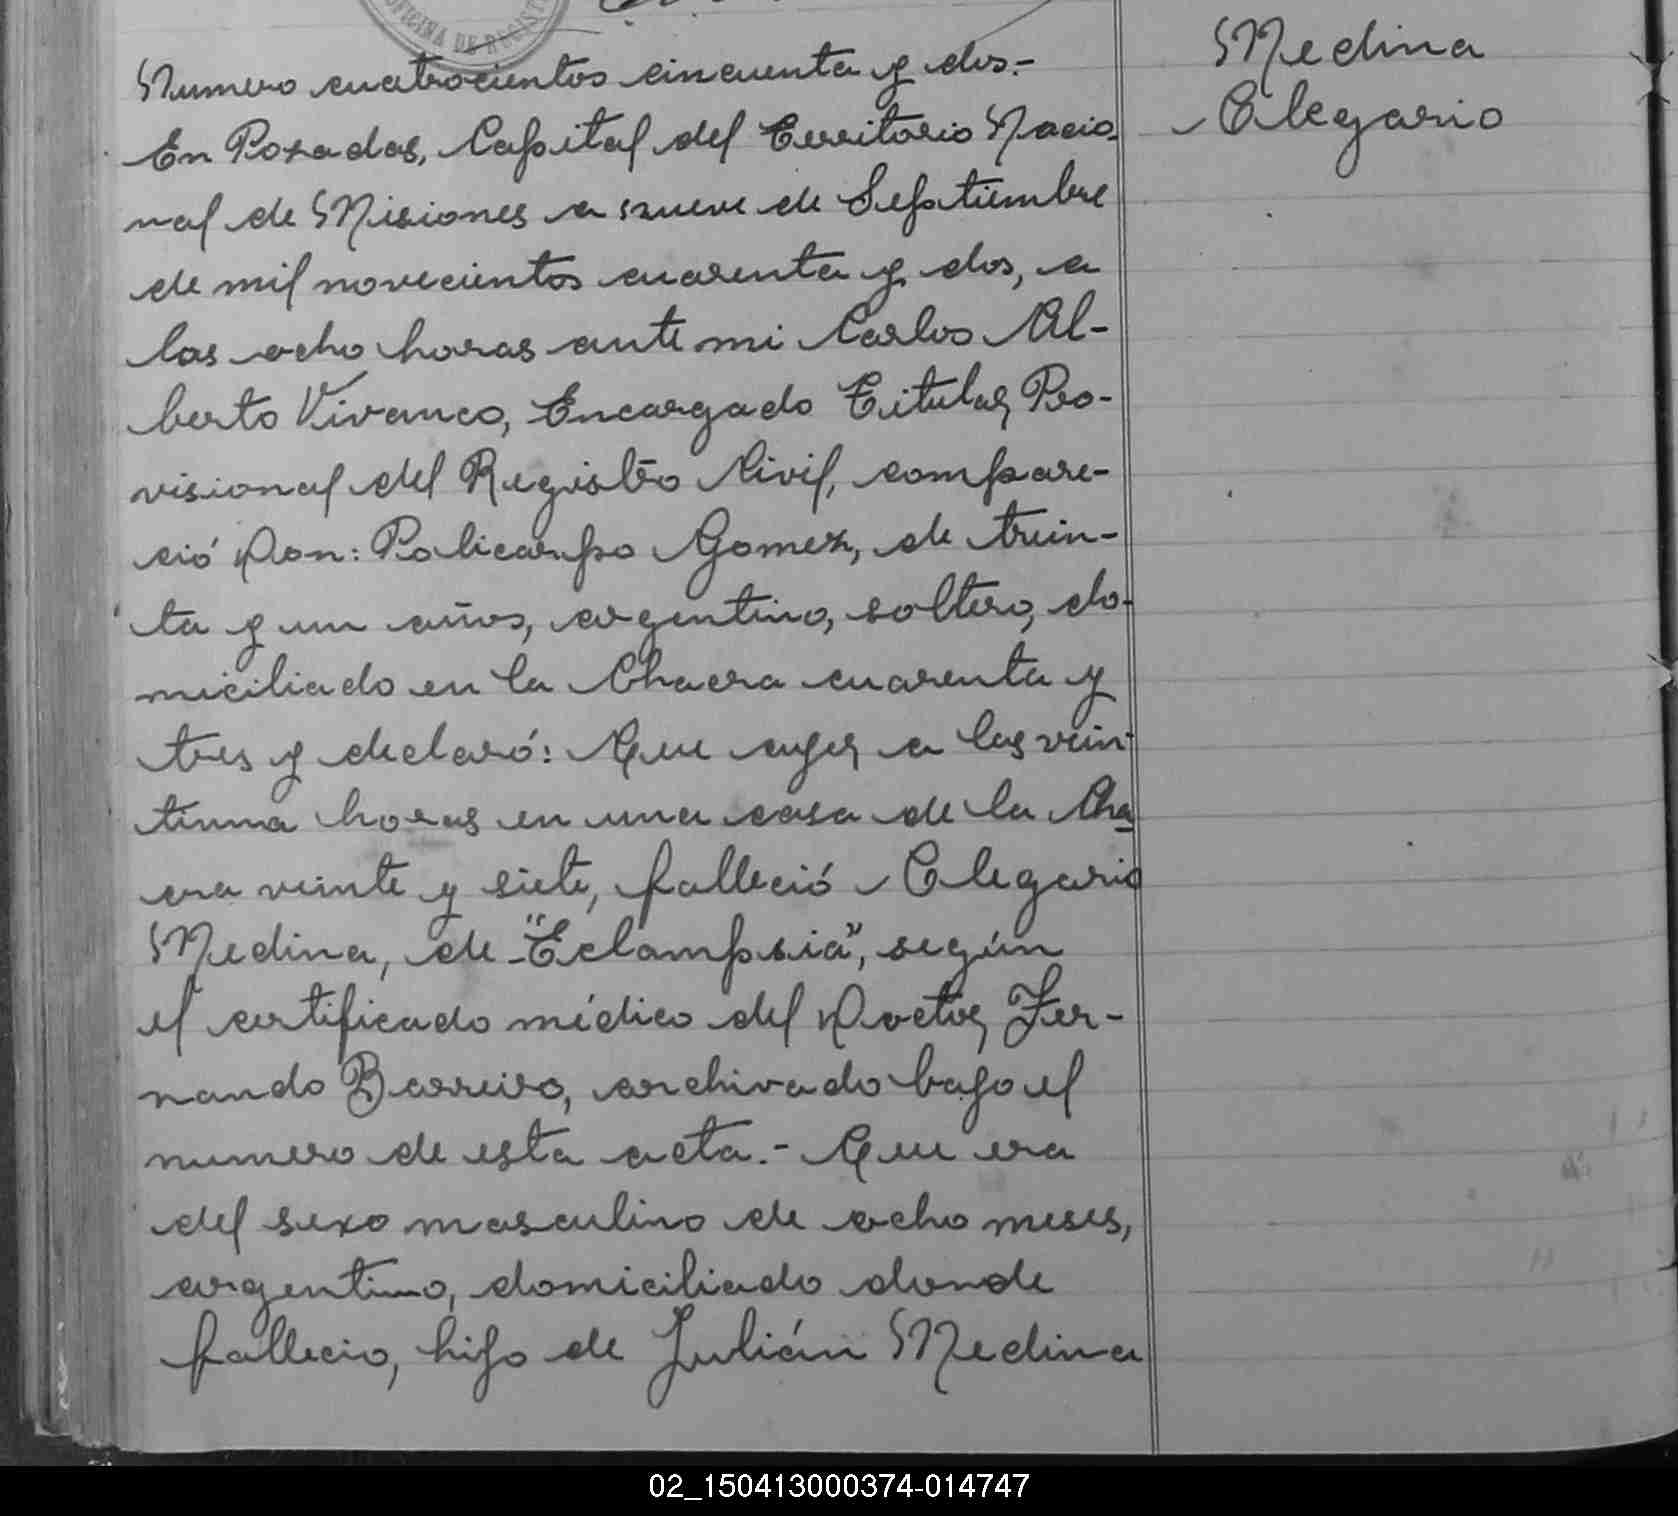 OFICINA DE REGIST
Numero cuatrocientos cincuenta y dos.-
En Posadas, Capital del Territorio Nacio-
nal de Misiones a nueve de Septiembre
de mil novecientos cuarenta y dos, a
las ocho horas ante mi Carlos Al-
berto Vivanco, Encargado Titular Pro-
visional del Registro Civil, compare-
ció Don: Policarpo Gomez, de trein-
ta y un años, argentino, soltero, do-
miciliado en la Chacra cuarenta y
tres y declaró: Que ayer a las vein-
tiuna horas en una casa de la Cha-
cra veinte y siete, falleció Olegario
Medina, de "Eclampsia", según
el certificado médico del Doctor Fer-
nando Barreiro, archivado bajo el
numero de esta acta.- Que era
del sexo masculino de ocho meses,
argentino, domiciliado donde
fallecio, hijo de Julián Medina
Medina
Olegario
02_150413000374-014747